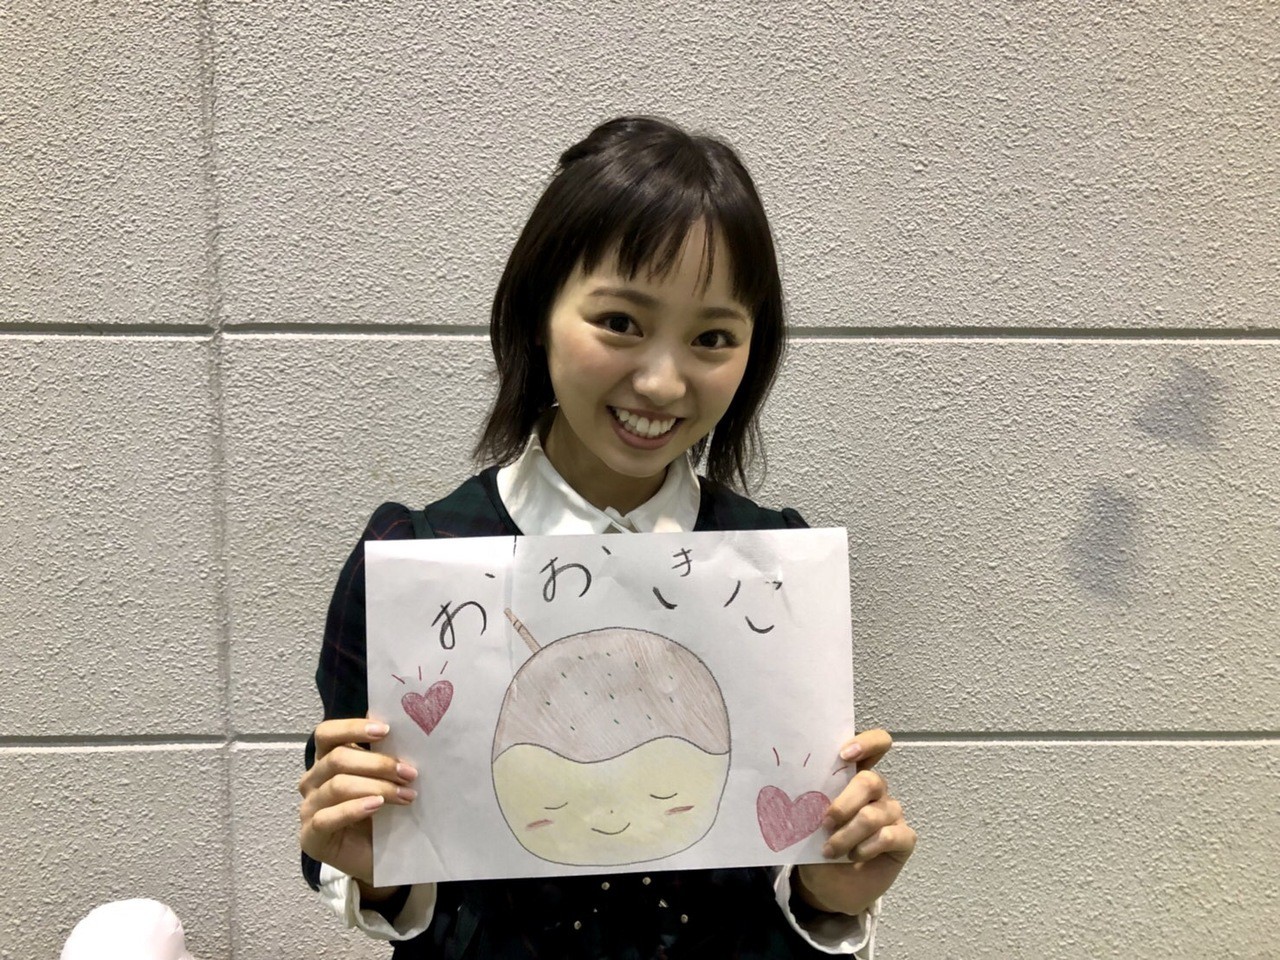 おおきに